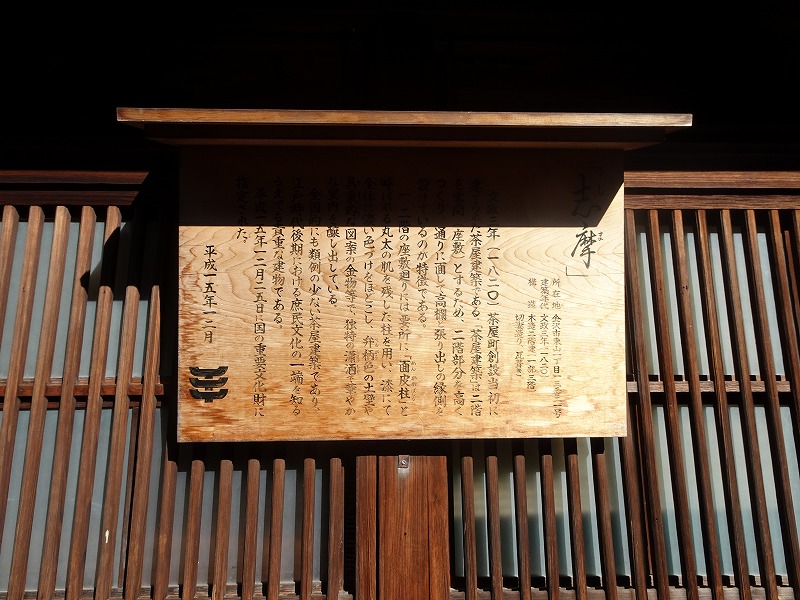 「志摩」
しま
所在地 金沢市東山一丁目一三番二一号
建築年代 文政三年(一八二〇)
構造 木造二階建(一部三階)
切妻造り、瓦葺き
文政三年(一八二〇)茶屋町創設当初に
建てられた茶屋建築である。「茶屋建築」は二階
を座敷)とするため、二階部分を高く
つくり通りに面して高欄と張り出しの縁側を
設けているのが特徴である。
一、二階の座敷廻りには要所に「面皮柱」と
呼ばれる丸太の肌を残した柱を用い、漆にて
全体に濃い色づけをほどこし、弁柄色の土壁や
具象的な図案の金物等で、独特の瀟洒で華やか
な雰囲気を醸し出している。
全国的にも類例の少ない茶屋建築であり、
江戸時代後期における庶民文化の一端を知る
うえでも貴重な建物である。
平成一五年一二月二五日に国の重要文化財に
指定された。
平成一五年一二月